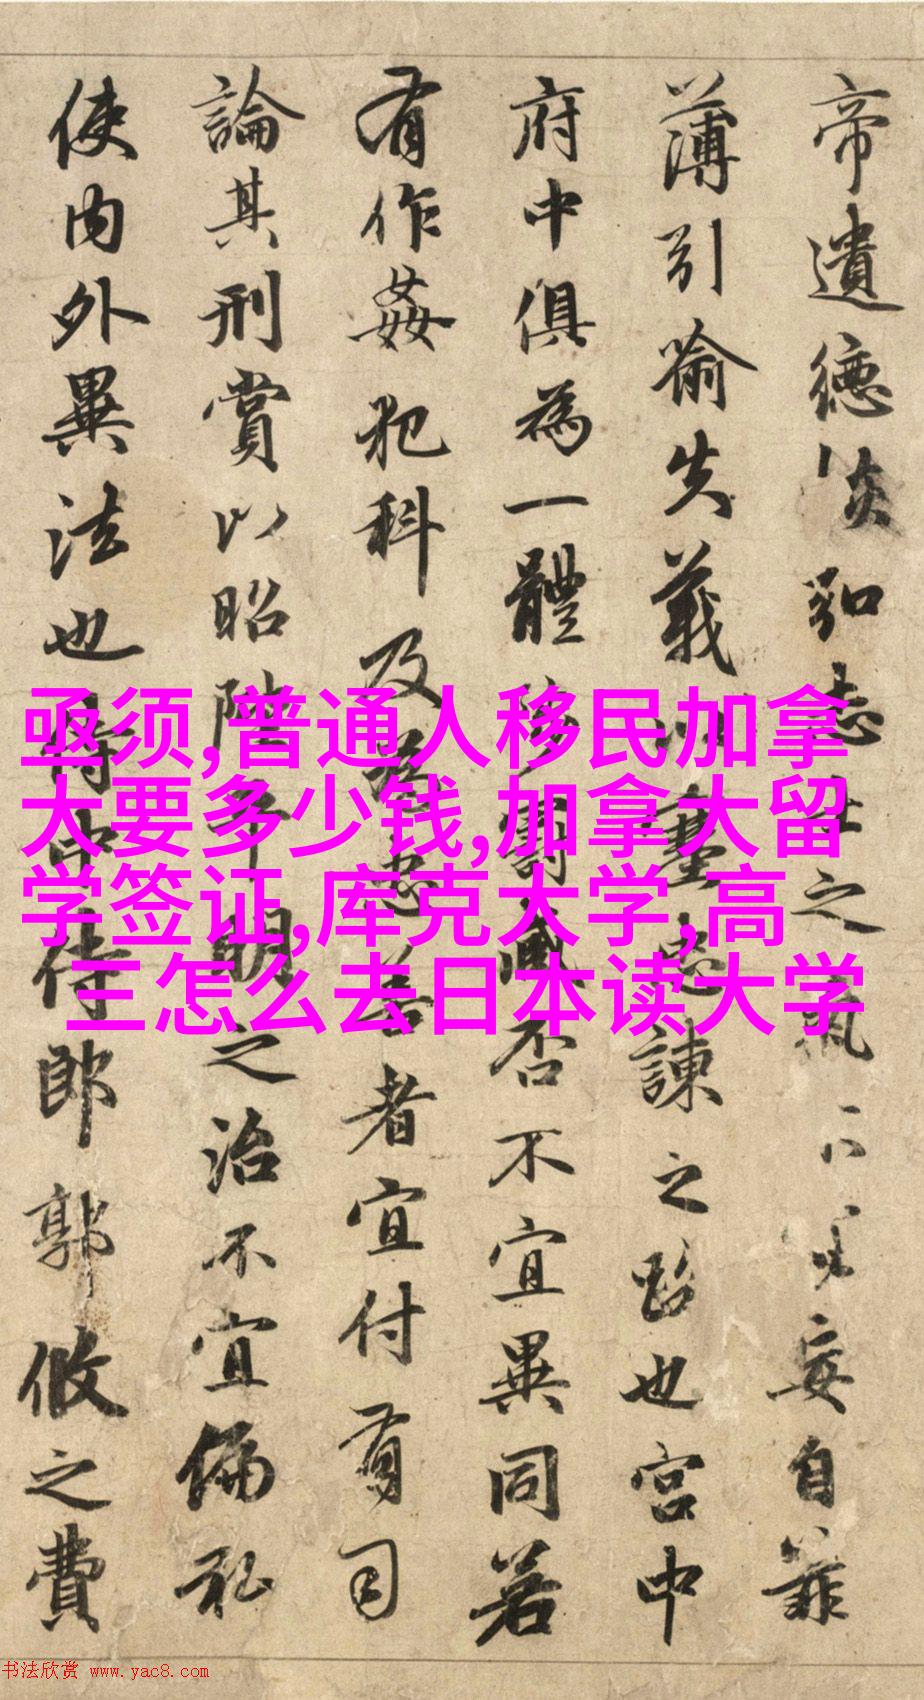 帝遺德恢弘志士之氣不妄自菲
薄引喻失義以塞忠諫之路也宮中
府中俱為一體陟罰臧否不宜異同若
有作姦犯科及為忠善者宜付有司
論其刑賞以昭陛平明之治不宜偏私
使內外異法也侍中侍郎郭攸之費
亟须,普通人移民加拿
大要多少钱,加拿大留
学签证,库克大学,高
三怎么去日本读大学
书法欣赏 www.yac8.com